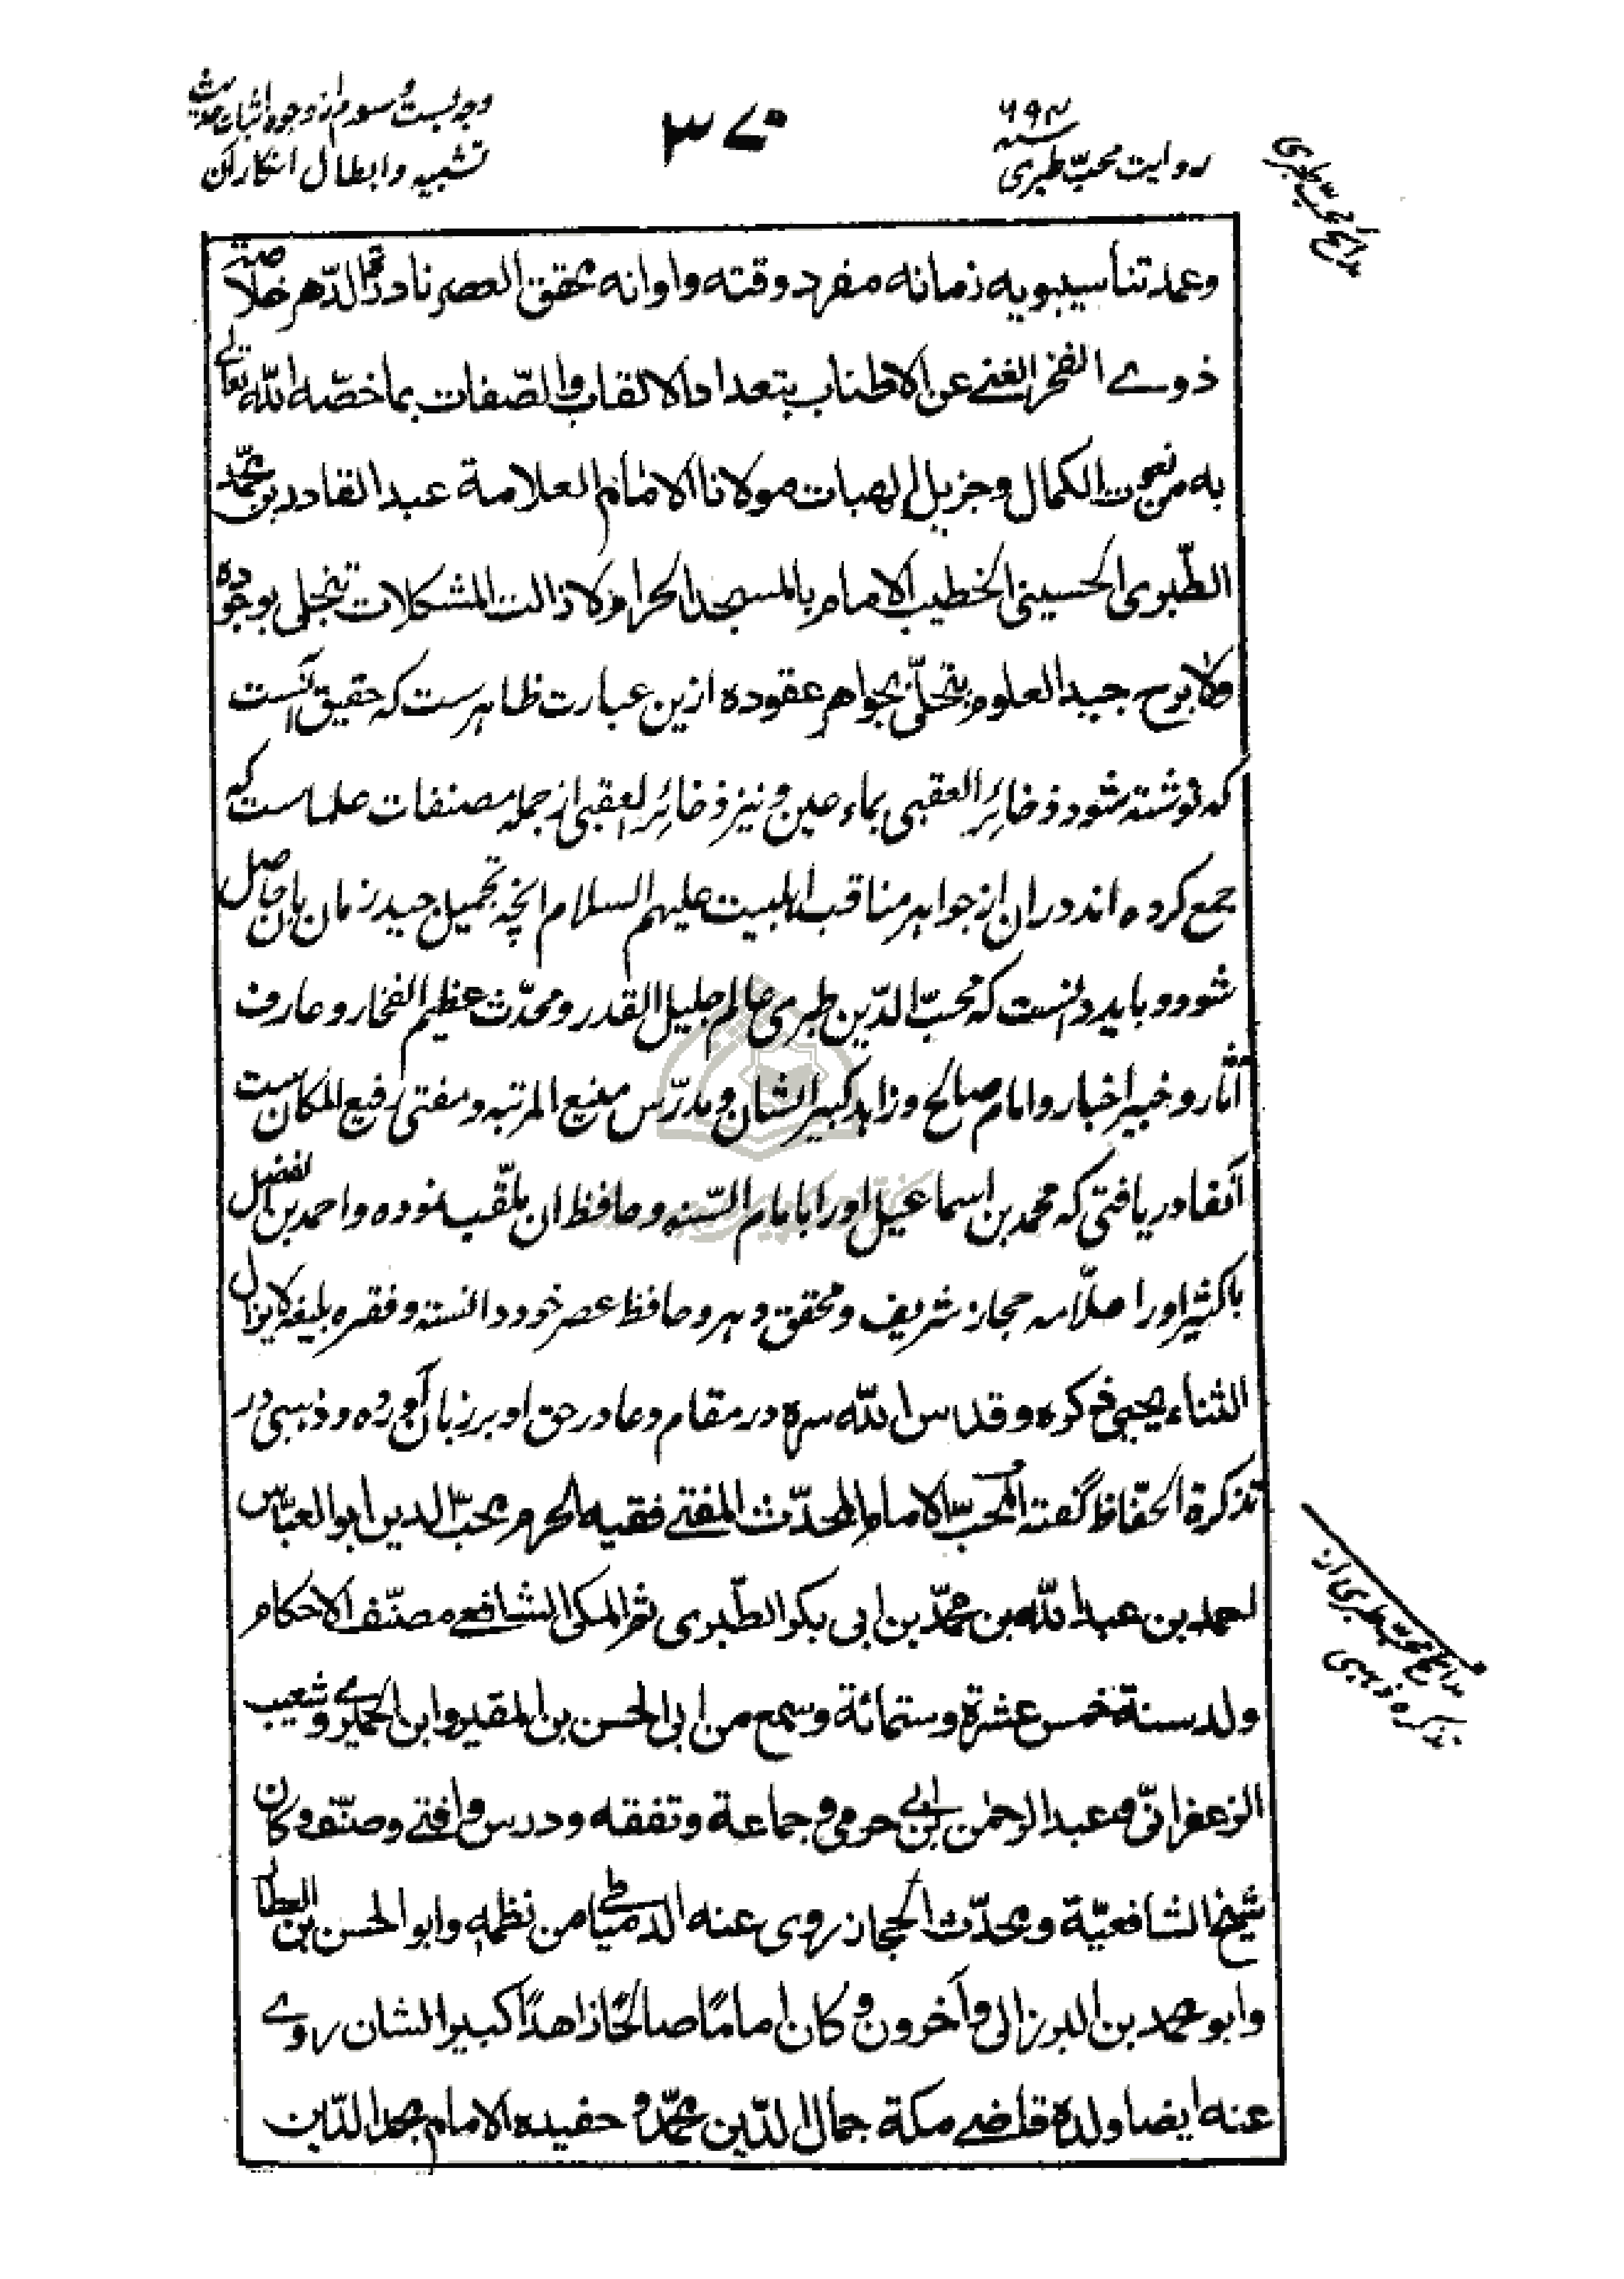 وجه بیست و سوم از وجوه اثبات حدیث
تشبیه و ابطال انکار آن
۳۷۰
۶۹۴
سنه
روایت محبّ طبری
مدائح محبّ طبری
وعمدتنا سیبویه زمانه مفرد وقته واوانه محقق العصر نادرة الدّهر خلاصة
ذوے الفخر الغنے عن الاطناب بتعداد الالقاب والصّفات بما خصّه اللّه تعالے
به من نعوت الکمال وجزیل الهبات مولانا الامام العلامة عبد القادر بن محمّد
الطّبری الحسینی الخطیب الامام بالمسجد الحرام لا زالت المشکلات تنجلی بوجوده
ولا برح جید العلوم یتحلّی بجواهر عقوده ازین عبارت ظاهرست که حقیق آنست
که نوشته شود ذخائر العقبی بماء عین و نیز ذخائر العقبی از جمله مصنفات علماست که
جمع کرده اند در ان از جواهر مناقب اهلبیت علیهم السلام آنچه تجمیل جید زمان بان حاصل
شود و باید دانست که محبّ الدّین طبری عالم جلیل القدر و محدّث عظیم الفخار و عارف
آثار و خبیر اخبار و امام صالح و زاهد کبیر الشان و مدرّس منیع المرتبه و مفتی رفیع المکان ست
آنفا دریافتی که محمد بن اسماعیل اورا بامام السّنه و حافظ ان ملقّب نموده و احمد بن الفضل
باکثیر اورا علّامه حجاز شریف و محقق دهر و حافظ عصر خود دانسته و فقره بلیغه لا یزال
الثناء یحیی ذکره و قدس اللّه سره در مقام دعا در حق او بر زبان آورده و ذهبی در
تذکرة الحفّاظ گفته المحبّ الامام المحدّث المفتے فقیه الحرم محبّ الدین ابو العبّاس
احمد بن عبد اللّه بن محمّد بن ابی بکر الطّبری ثم المکی الشافعے مصنّف الاحکام
ولد سنة خمس عشرة وستمائة وسمع من ابی الحسن بن المقیر وابن الجمیزے وشعیب
الزعفرانّی وعبد الرحمٰن بن ابے حرمی وجماعة وتفقه ودرس وافتے وصنّف وکان
شیخ الشافعیّة ومحدّث الحجاز روی عنه الدّمیاطے من نظمه وابو الحسن بن العطار
وابو محمد بن البرزالی وآخرون وکان اماماً صالحًا زاهدًا کبیر الشان روے
عنه ایضا ولده قاضے مکة جمال الدّین محمّد وحفیده الامام نجم الدّین
مدائح محبّ طبری از
تذکره ذهبی